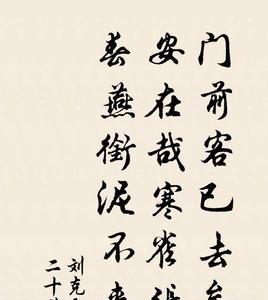 门前客已去
安在哉寒雀
春燕銜泥不
刘克
二十